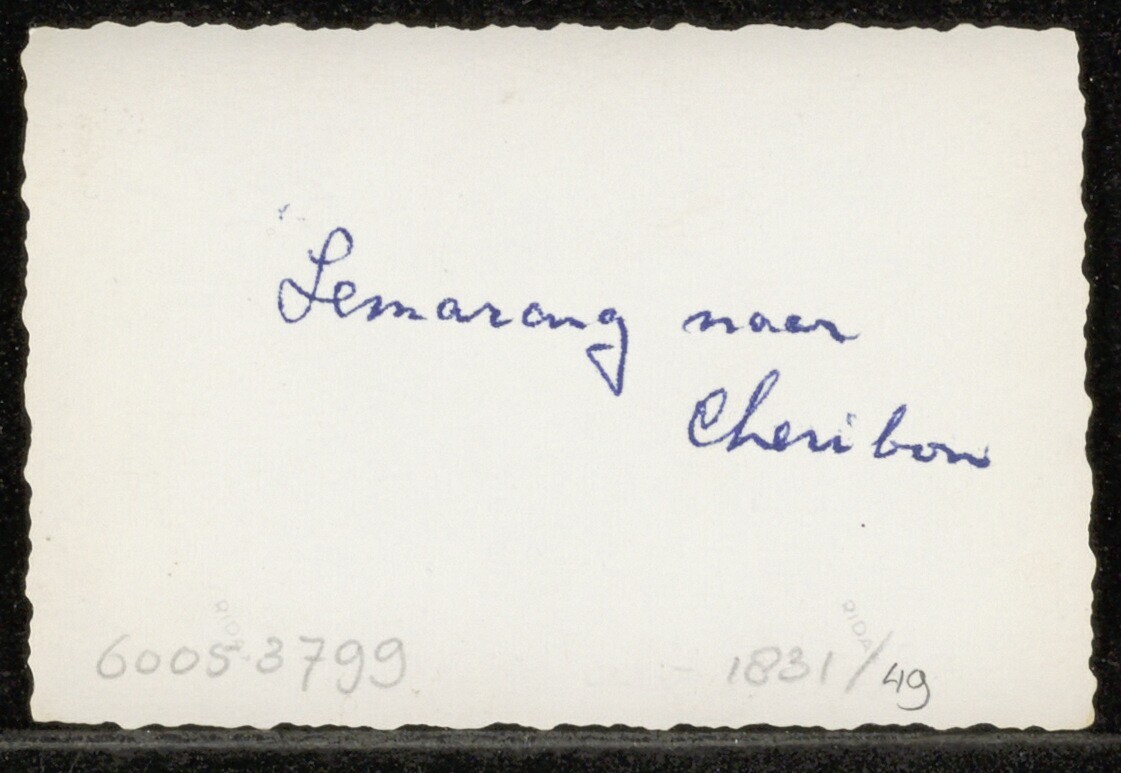 Semarang naar
Cheribon
6005-3799
1831/49